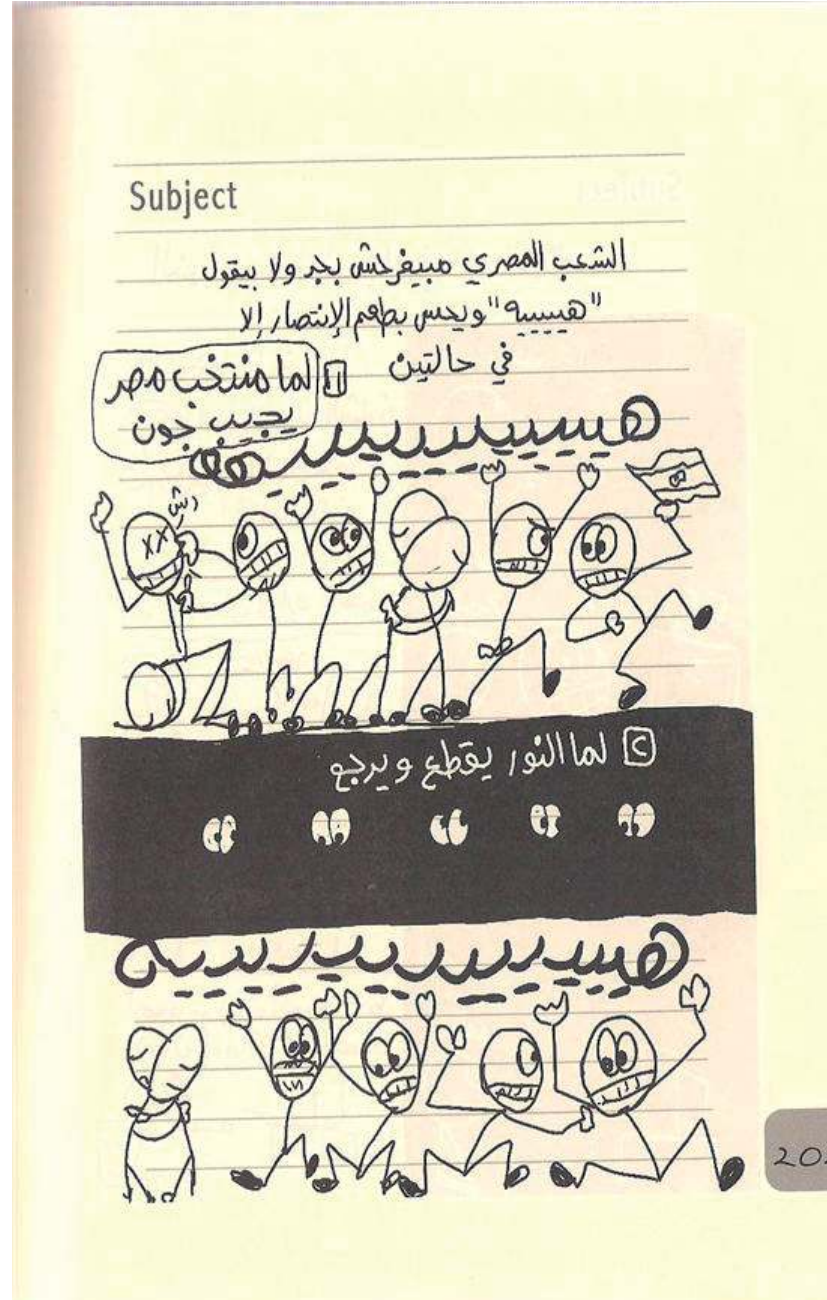 Subject
الشعب المصري مبيفرحش بجد ولا بيقول
"هيييييه" ويحس بطعم الإنتصار إلا
في حالتين
١ لما منتخب مصر
يجيب جون
هييييييييييه
رش
٢ لما النور يقطع ويرجع
هييييييييييييه